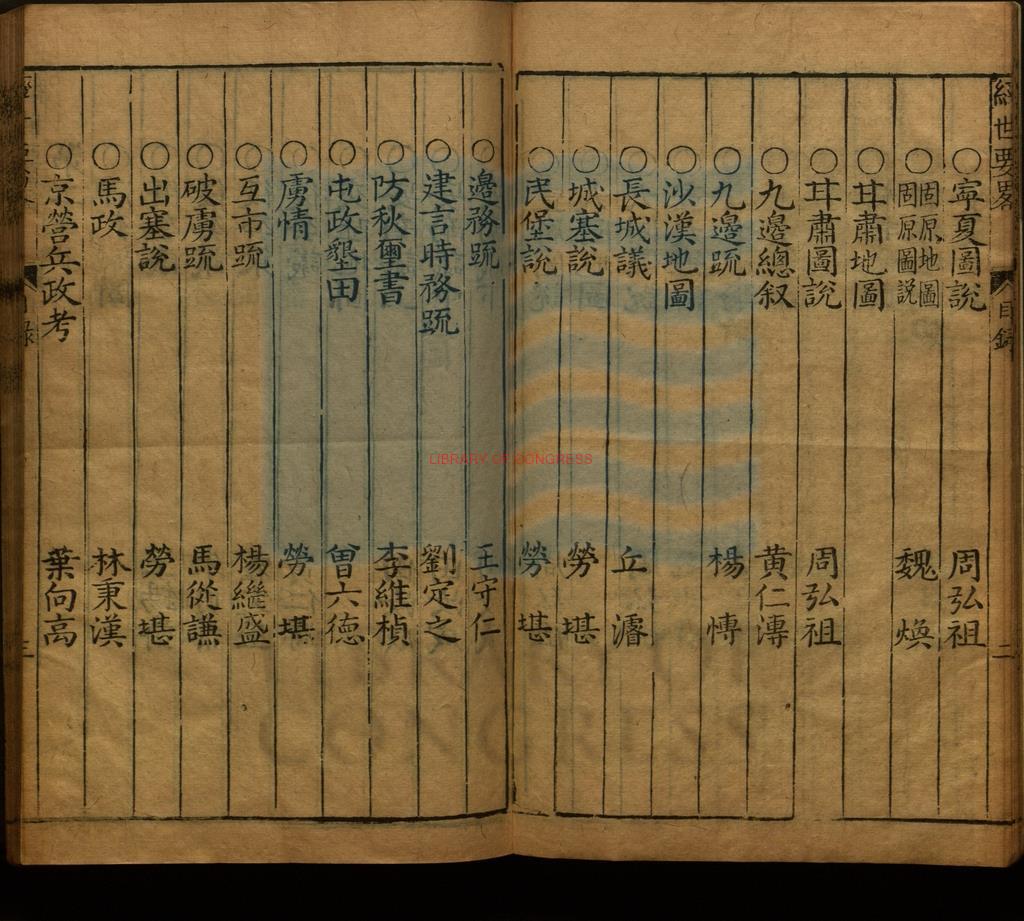 經世要畧 目錄 二
○寧夏圖說 周弘祖
○固原地圖 固原圖說 魏煥
○甘肅地圖
○甘肅圖說 周弘祖
○九邊總叙 黃仁溥
○九邊䟽 楊博
○沙漠地圖
○長城議 丘濬
○城塞說 勞堪
○民堡說 勞堪
○邊務䟽 王守仁
○建言時務䟽 劉定之
○防秋璽書 李維楨
○屯政墾田 曾六德
○虜情 勞堪
○互市䟽 楊繼盛
○破虜䟽 馬從謙
○出塞說 勞堪
○馬政 林秉漢
○京營兵政考 葉向高
目錄 三
LIBRARY OF CONGRESS